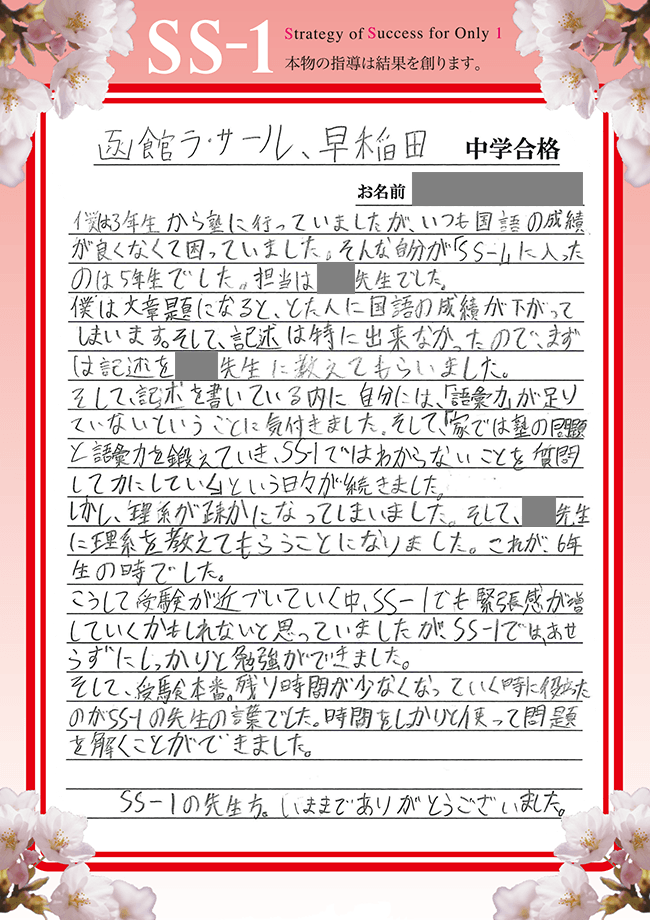 SS-1
Strategy of Success for Only 1
本物の指導は結果を創ります。
函館ラ・サール、早稲田 中学合格
お名前
僕は3年生から塾に行っていましたが、いつも国語の成績
が良くなくて困っていました。そんな自分が「SS-1」に入った
のは5年生でした。担当は 先生でした。
僕は文章題になると、とたんに国語の成績が下がって
しまいます。そして、記述は特に出来なかったので、まず
は記述を 先生に教えてもらいました。
そして、記述を書いている内に自分には、「語彙力」が足り
ていないということに気付きました。そして、「家では塾の問題
と語彙力を鍛えていき、SS-1ではわからないことを質問
して力にしていく」という日々が続きました。
しかし、理系が疎かになってしまいました。そして、 先生
に理系を教えてもらうことになりました。これが、6年
生の時でした。
こうして受験が近づいていく中、SS-1でも緊張感が増
していくかもしれないと思っていましたが、SS-1では、あせ
らずにしっかりと勉強ができました。
そして、受験本番。残り時間が少なくなっていく時に役立った
のがSS-1の先生の言葉でした。時間をしっかりと使って問題
を解くことができました。
SS-1の先生方。いままでありがとうございました。